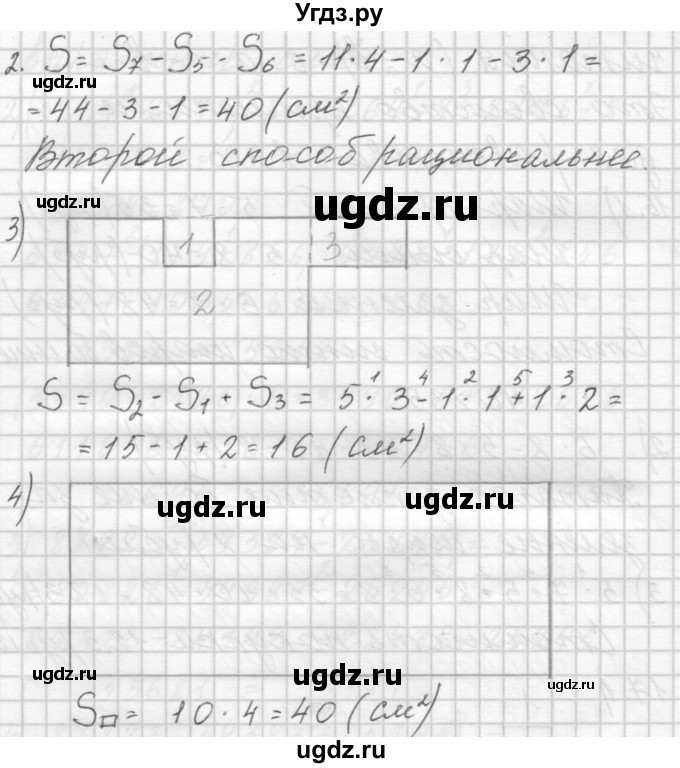 Угдз.ру
2. S = S₇ - S₅ - S₆ = 11 · 4 - 1 · 1 - 3 · 1 =
= 44 - 3 - 1 = 40 (см²)
ugdz.ru
ugdz.ru
Второй способ рациональнее.
ugdz.ru
ugdz.ru
3)
1
3
2
1 4 2 5 3
S = S₂ - S₁ + S₃ = 5 · 3 - 1 · 1 + 1 · 2 =
= 15 - 1 + 2 = 16 (см²)
4)
ugdz.ru
ugdz.ru
ugdz.ru
ugdz.ru
ugdz.ru
ugdz.ru
S□ = 10 · 4 = 40 (см²)
ugdz.ru